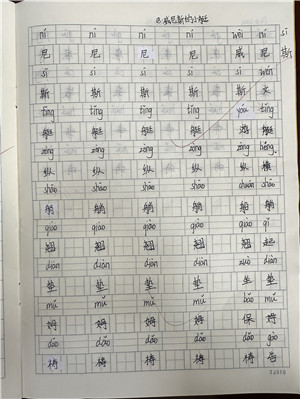 8 威尼斯的小艇
ní ní ní ní wēi ní sī
尼 尼 尼 尼 威 尼 斯
sī sī sī sī sī wén
斯 斯 斯 斯 斯 文
tǐng tǐng tǐng tǐng yóu tǐng
艇 艇 艇 艇 游 艇
zòng zòng zòng zòng zòng héng
纵 纵 纵 纵 纵 横
shāo shāo shāo shāo chuán shāo
艄 艄 艄 艄 船 艄
qiào qiào qiào qiào qiào qǐ
翘 翘 翘 翘 翘 起
diàn diàn diàn diàn zuò diàn
垫 垫 垫 垫 坐 垫
mǔ mǔ mǔ bǎo mǔ
姆 姆 姆 姆 保 姆
dǎo dǎo dǎo dǎo gào
祷 祷 祷 祷 告